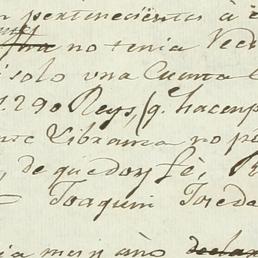 n pertenecientes à
no tenia Veed
solo vna Cuenta
1.290 Reys, (q. hacen p
te Librama no p
, de que doy fè,
Joaquin Toreda
ia mes y año